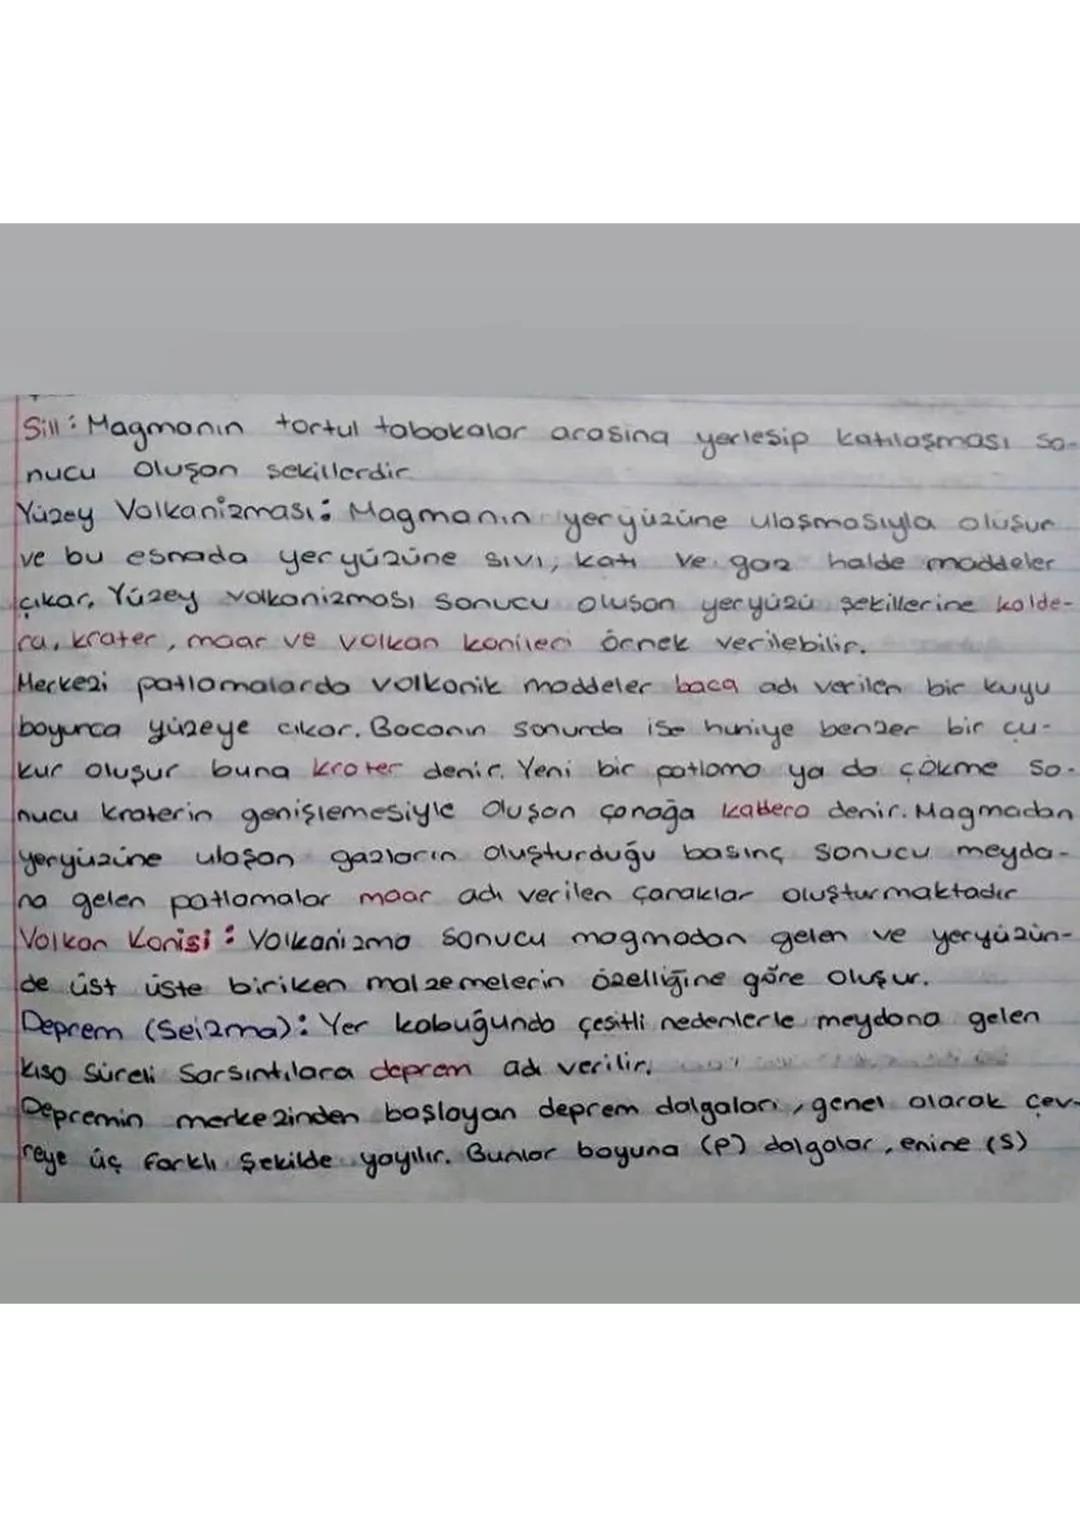 Sill: Magmanın tortul tabakalar arasına yerleşip katılaşması so-
nucu oluşan sekillerdir.
Yüzey Volkanizması: Magmanın yeryüzüne ulaşmasıyla oluşur
ve bu esnada yeryüzüne sıvı, katı ve gaz halde maddeler
çıkar. Yüzey volkanizması sonucu oluşan yeryüzü şekillerine kalde-
ra, krater, maar ve volkan konileri örnek verilebilir.
Merkezi patlamalarda volkanik maddeler baca adı verilen bir kuyu
boyunca yüzeye çıkar. Bacanın sonunda ise huniye benzer bir çu-
kur oluşur buna krater denir. Yeni bir patlama ya da çökme so-
nucu kraterin genişlemesiyle oluşan çanağa kaldera denir. Magmadan
yeryüzüne ulaşan gazların oluşturduğu basınç sonucu meyda-
na gelen patlamalar maar adı verilen çanaklar oluşturmaktadır
Volkan Konisi: Volkanizma sonucu magmadan gelen ve yeryüzün-
de üst üste biriken malzemelerin özelliğine göre oluşur.
Deprem (Seizma): Yer kabuğunda çeşitli nedenlerle meydana gelen
kısa süreli sarsıntılara deprem adı verilir.
Depremin merkezinden başlayan deprem dalgaları, genel olarak çev-
reye üç farklı şekilde yayılır. Bunlar boyuna (P) dalgalar, enine (S)